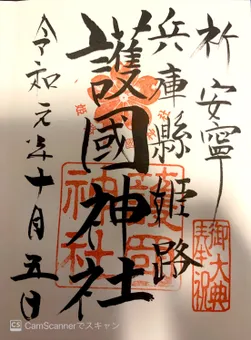 祈安寧
兵庫縣姫路
護國神社
令和元年十月五日
護國
神社
御大典
奉祝
CS CamScannerでスキャン